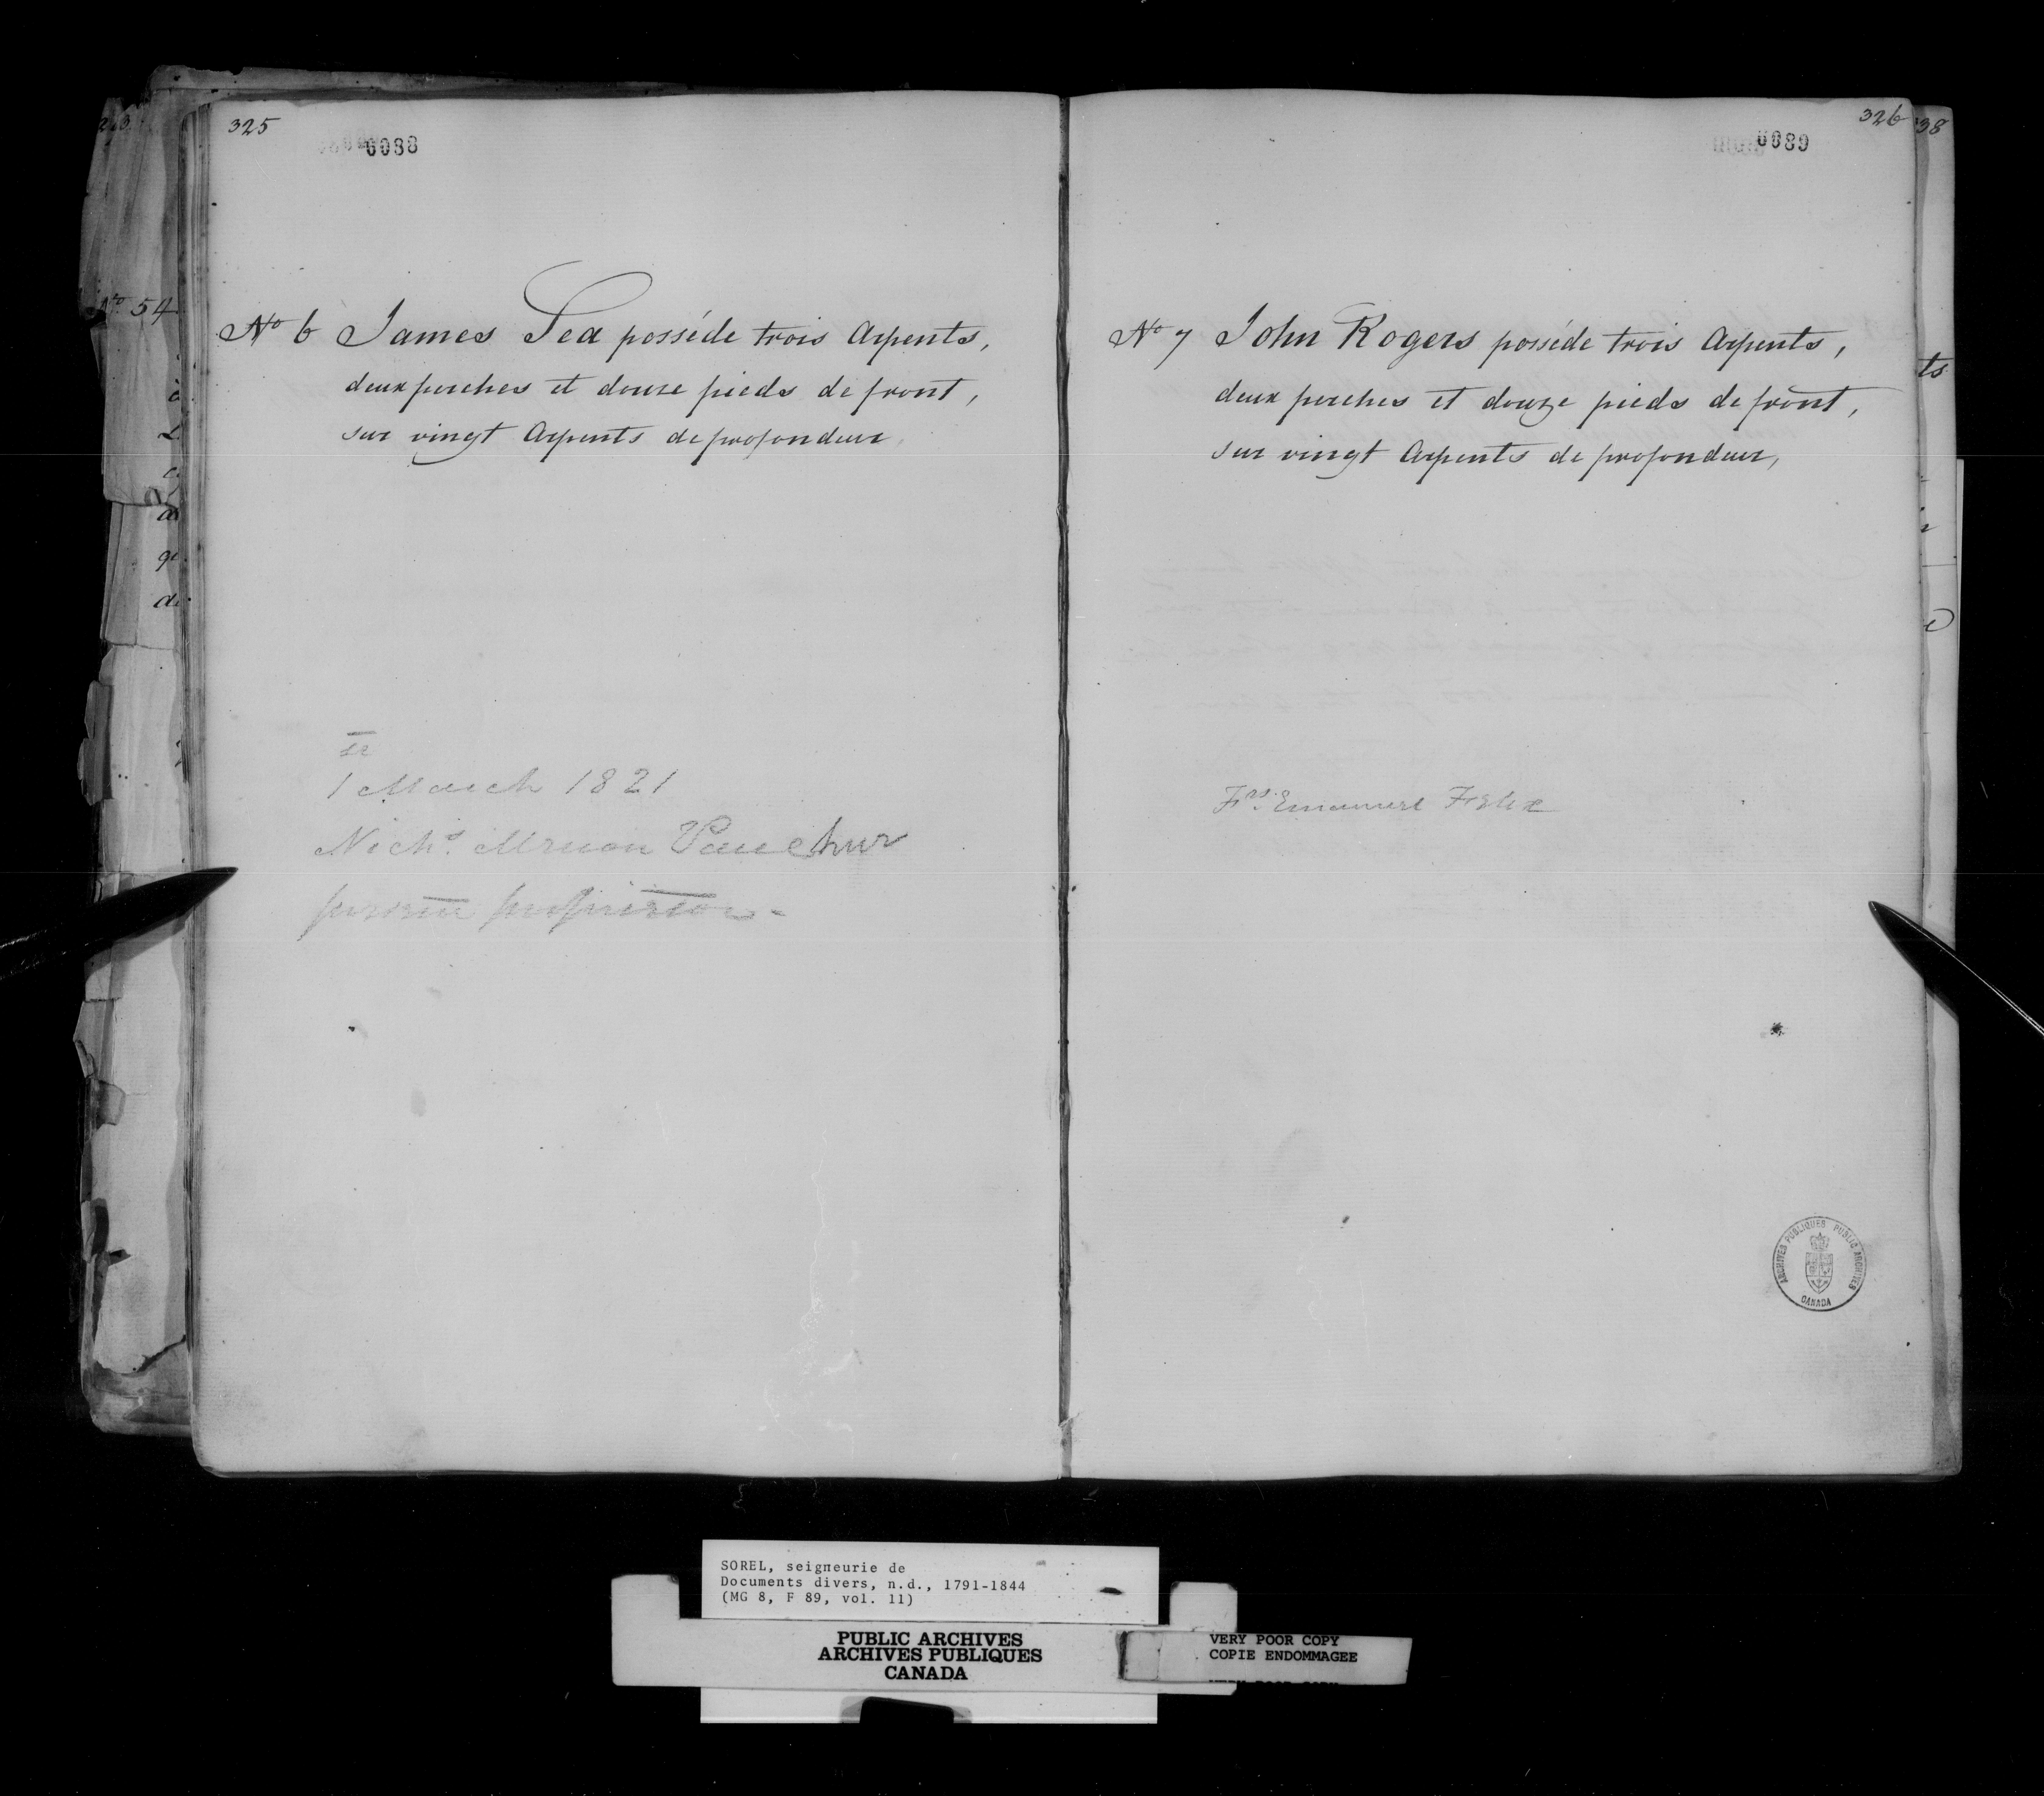 325
0088
No 6 James Sea posséde trois Arpents,
deux perches et douze pieds de front,
sur vingt Arpents de profondeur,
1 March 1821
Nichs.
326
0089
No 7 John Rogers posséde trois Arpents,
deux perches et douze pieds de front,
sur vingt Arpents de profondeur,
Frs. Emanuel Felix
38
No 54
ts
ARCHIVES PUBLIQUES PUBLIC ARCHIVES
CANADA
SOREL, seigneurie de
Documents divers, n.d., 1791-1844
(MG 8, F 89, vol. 11)
PUBLIC ARCHIVES
ARCHIVES PUBLIQUES
CANADA
VERY POOR COPY
COPIE ENDOMMAGEE